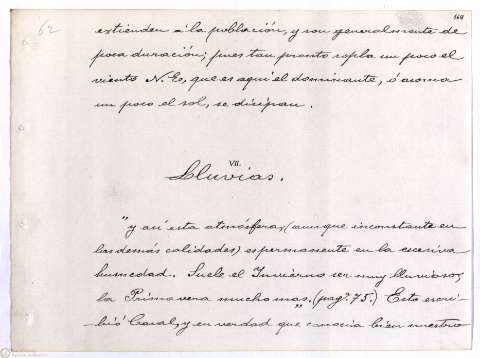 62
168
extienden á la población, y son generalmente de
poca duración; pues tan pronto sopla un poco el
viento N.E, que es aquí el dominante, ó asoma
un poco el sol, se disipan.
VII.
Lluvias.
"y así esta atmósfera, (aunque inconstante en
las demás calidades) es permanente en la excesiva
humedad. Suele el Invierno ser muy lluvioso,
la Primavera mucho mas." (pagª. 75.) Esto escri-
bió Casal, y en verdad que conocia bien nuestro